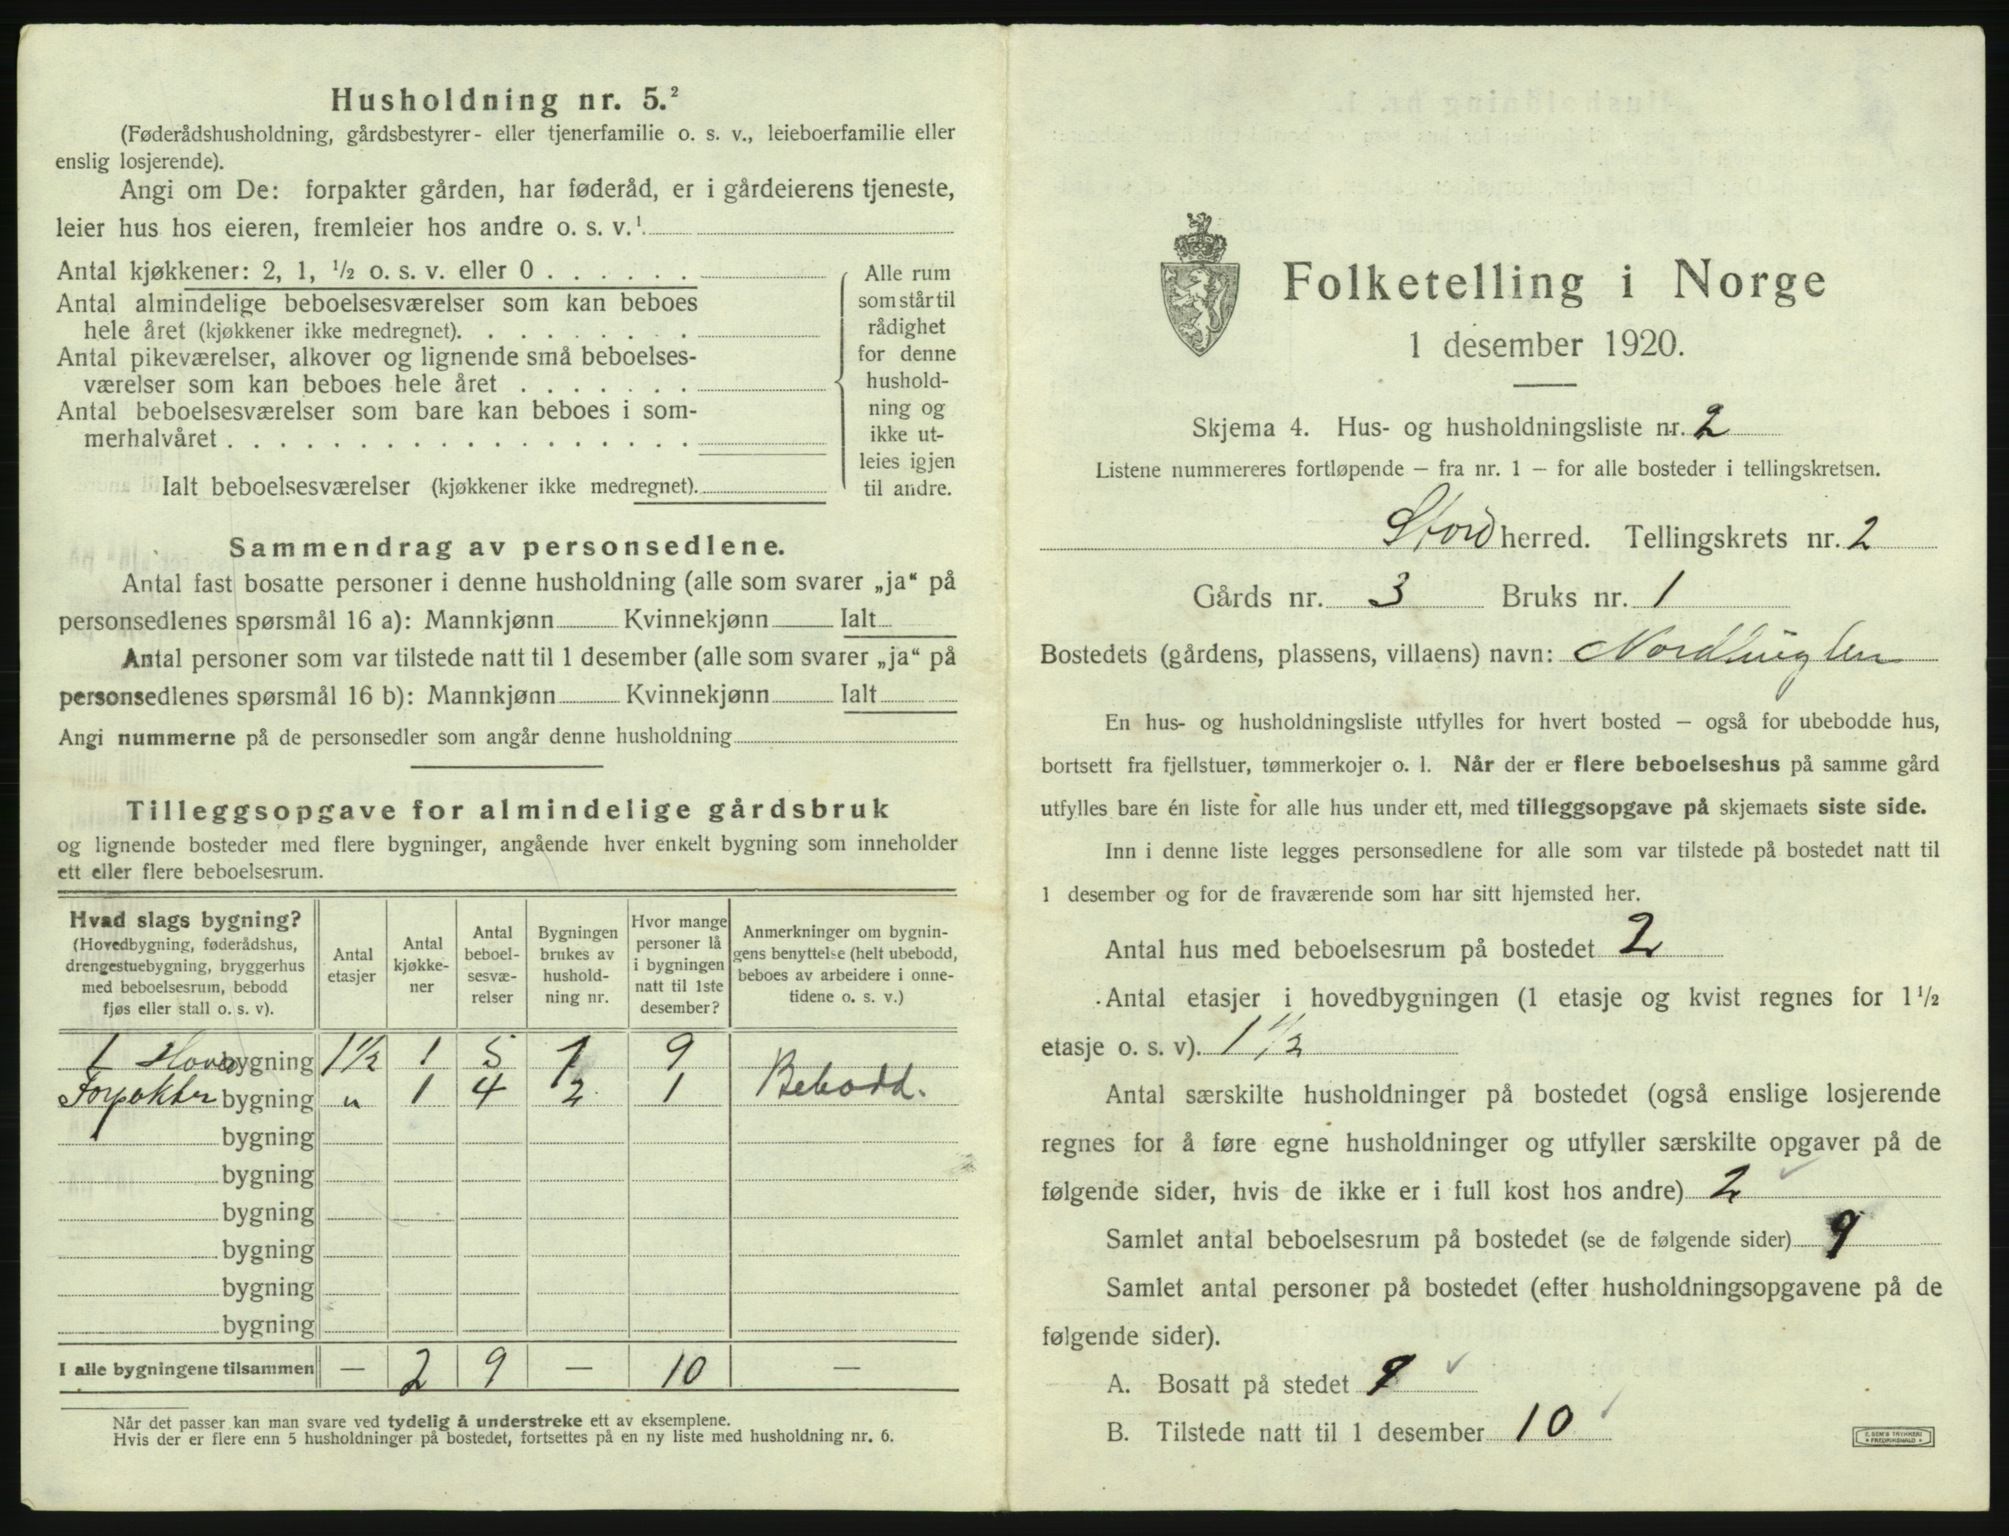 Husholdning nr. 5.²
(Føderådshusholdning, gårdsbestyrer- eller tjenerfamilie o. s. v., leieboerfamilie eller
enslig losjerende).
Angi om De: forpakter gården, har føderåd, er i gårdeierens tjeneste,
leier hus hos eieren, fremleier hos andre o. s. v.¹
Antal kjøkkener: 2, 1, ½ o. s. v. eller 0 . . . . . .
Antal almindelige beboelsesværelser som kan beboes
hele året (kjøkkener ikke medregnet). . . . . . . . .
Antal pikeværelser, alkover og lignende små beboelses-
værelser som kan beboes hele året . . . . . . .
Antal beboelsesværelser som bare kan beboes i som-
merhalvåret . . . . . . . . . . . . . . . . . .
Ialt beboelsesværelser (kjøkkener ikke medregnet).
Alle rum
som står til
rådighet
for denne
hushold-
ning og
ikke ut-
leies igjen
til andre.
Sammendrag av personsedlene.
Antal fast bosatte personer i denne husholdning (alle som svarer „ja“ på
personsedlenes spørsmål 16 a): Mannkjønn Kvinnekjønn Ialt
Antal personer som var tilstede natt til 1 desember (alle som svarer „ja“ på
personsedlenes spørsmål 16 b): Mannkjønn Kvinnekjønn Ialt
Angi nummerne på de personsedler som angår denne husholdning
Tilleggsopgave for almindelige gårdsbruk
og lignende bosteder med flere bygninger, angående hver enkelt bygning som inneholder
ett eller flere beboelsesrum.
Hvad slags bygning?
(Hovedbygning, føderådshus,
drengestuebygning, bryggerhus
med beboelsesrum, bebodd
fjøs eller stall o. s. v).
Antal
etasjer
Antal
kjøkke-
ner
Antal
beboel-
sesvæ-
relser
Bygningen
brukes av
hushold-
ning nr.
Hvor mange
personer lå
i bygningen
natt til 1ste
desember?
Anmerkninger om bygnin-
gens benyttelse (helt ubebodd,
beboes av arbeidere i onne-
tidene o. s. v.)
1 Hovedbygning 1½ 1 5 1 9
Forpakter bygning " 1 4 2 1 Bebodd.
bygning
bygning
bygning
bygning
bygning
bygning
I alle bygningene tilsammen — 2 9 — 10 —
Når det passer kan man svare ved tydelig å understreke ett av eksemplene.
Hvis der er flere enn 5 husholdninger på bostedet, fortsettes på en ny liste med husholdning nr. 6.
Folketelling i Norge
1 desember 1920.
Skjema 4. Hus- og husholdningsliste nr. 2
Listene nummereres fortløpende — fra nr. 1 — for alle bosteder i tellingskretsen.
Stord herred. Tellingskrets nr. 2
Gårds nr. 3 Bruks nr. 1
Bostedets (gårdens, plassens, villaens) navn:
En hus- og husholdningsliste utfylles for hvert bosted — også for ubebodde hus,
bortsett fra fjellstuer, tømmerkojer o. l. Når der er flere beboelseshus på samme gård
utfylles bare én liste for alle hus under ett, med tilleggsopgave på skjemaets siste side.
Inn i denne liste legges personsedlene for alle som var tilstede på bostedet natt til
1 desember og for de fraværende som har sitt hjemsted her.
Antal hus med beboelsesrum på bostedet 2
Antal etasjer i hovedbygningen (1 etasje og kvist regnes for 1½
etasje o. s. v). 1½
Antal særskilte husholdninger på bostedet (også enslige losjerende
regnes for å føre egne husholdninger og utfyller særskilte opgaver på de
følgende sider, hvis de ikke er i full kost hos andre) 2
Samlet antal beboelsesrum på bostedet (se de følgende sider) 9
Samlet antal personer på bostedet (efter husholdningsopgavene på de
følgende sider).
A. Bosatt på stedet 9
B. Tilstede natt til 1 desember 10